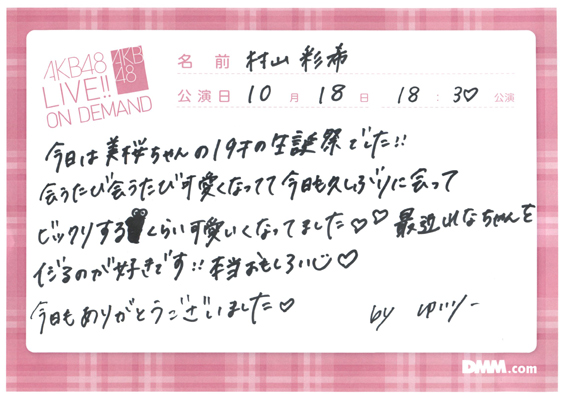 AKB48
LIVE!!
ON DEMAND
AKB
48
名前 村山彩希
公演日 10月 18日 18:30 公演
今日は美桜ちゃんの19才の生誕祭でした!!
会うたび会うたび可愛くなってて今日も久しぶりに会って
ビックリする くらい可愛いくなってました♡♡ 最近れなちゃんを
イジるのが好きです!! 本当おもしろい♡
今日もありがとうございました♡
by ゆいりー
DMM.com